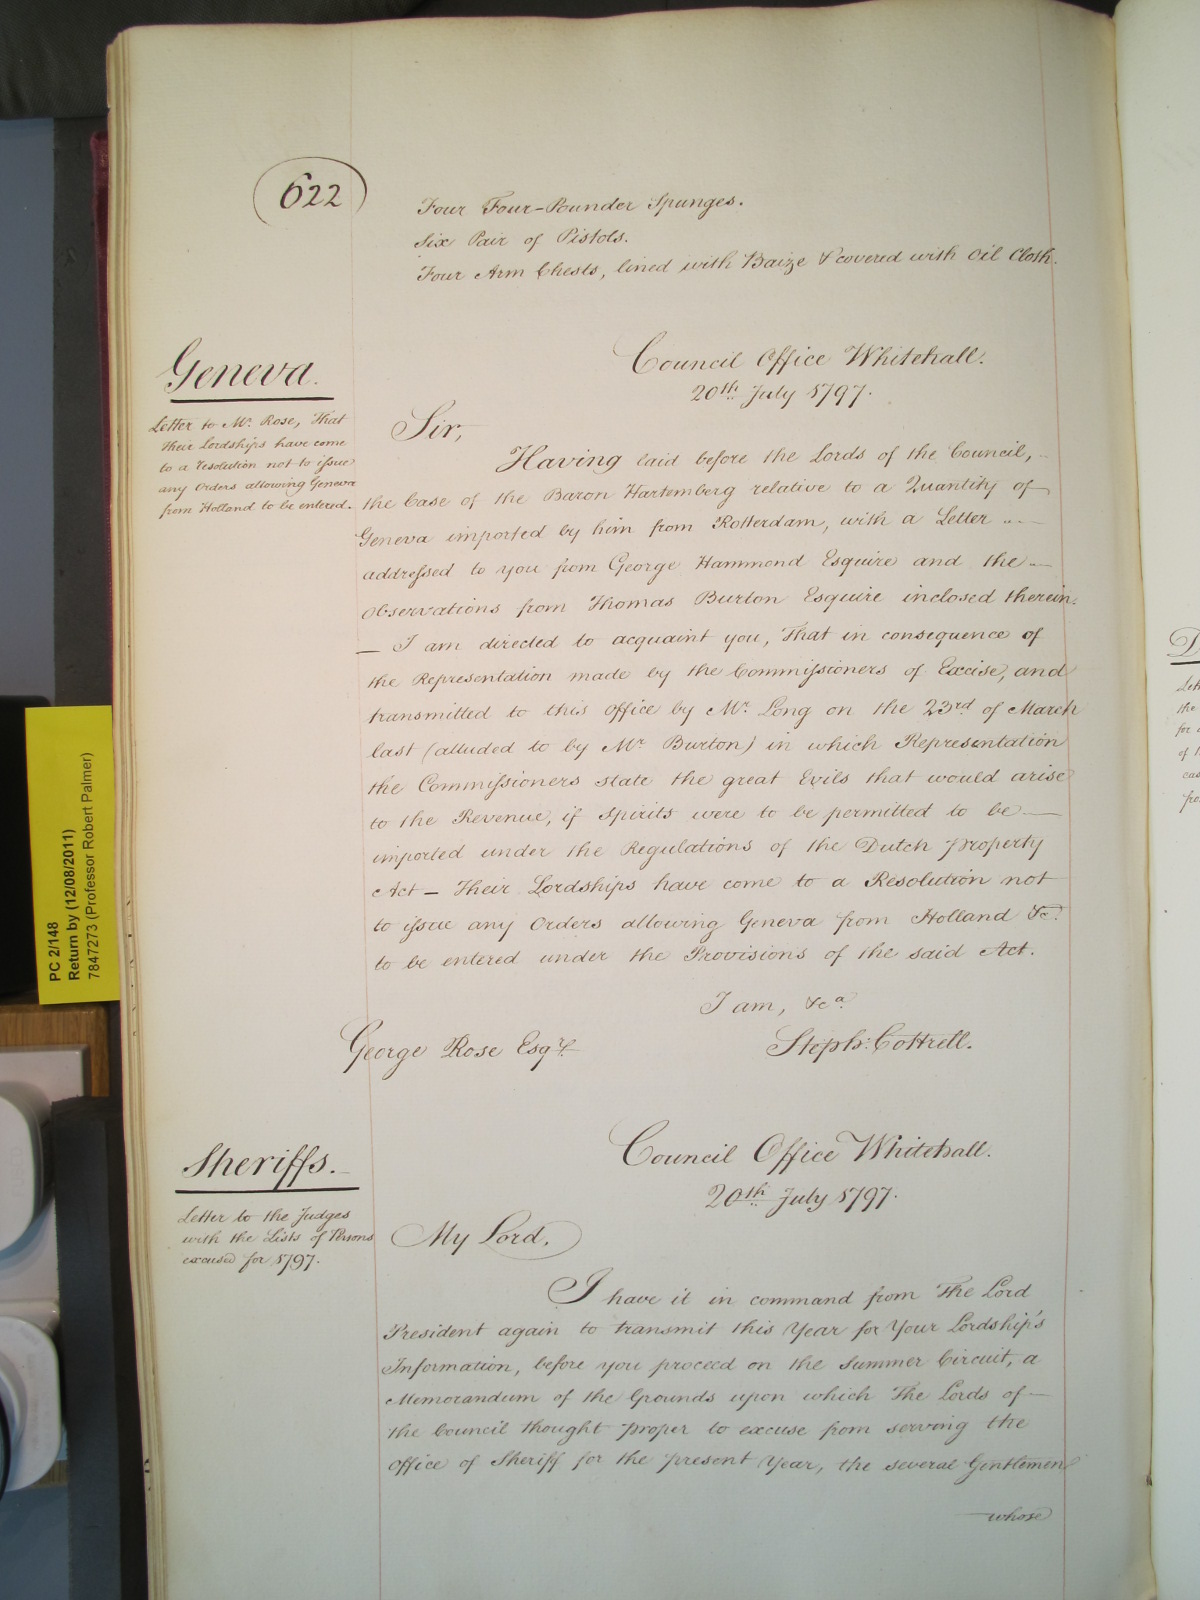 622
Four Four-Pounder Spunges.
Six Pair of Pistols.
Four Arm Chests, lined with Baize & covered with Oil Cloth.
Geneva.
Letter to Mr. Rose, That
their Lordships have come
to a resolution not to issue
any Orders allowing Geneva
from Holland to be entered.
Council Office Whitehall.
20th July 1797.
Sir,
Having laid before the Lords of the Council,
the Case of the Baron Hartemberg relative to a Quantity of
Geneva imported by him from Rotterdam, with a Letter
addressed to you from George Hammond Esquire and the
Observations from Thomas Burton Esquire inclosed therein.
— I am directed to acquaint you, That in consequence of
the Representation made by the Commissioners of Excise, and
transmitted to this Office by Mr. Long on the 23rd of March
last (alluded to by Mr. Burton) in which Representation
the Commissioners state the great Evils that would arise
to the Revenue, if Spirits were to be permitted to be —
imported under the Regulations of the Dutch property
Act — Their Lordships have come to a Resolution not
to issue any Orders allowing Geneva from Holland &c.
to be entered under the Provisions of the said Act.
I am, &ca.
George Rose Esqre.
Steph: Cottrell.
Sheriffs.
Letter to the Judges
with the Lists of Persons
excused for 1797.
Council Office Whitehall.
20th July 1797.
My Lord,
I have it in command from The Lord
President again to transmit this Year for Your Lordship's
Information, before you proceed on the Summer Circuit, a
Memorandum of the Grounds upon which The Lords of —
the Council thought proper to excuse from serving the
Office of Sheriff for the present Year, the several Gentlemen
whose
PC 2/148
Return by (12/08/2011)
7847273 (Professor Robert Palmer)